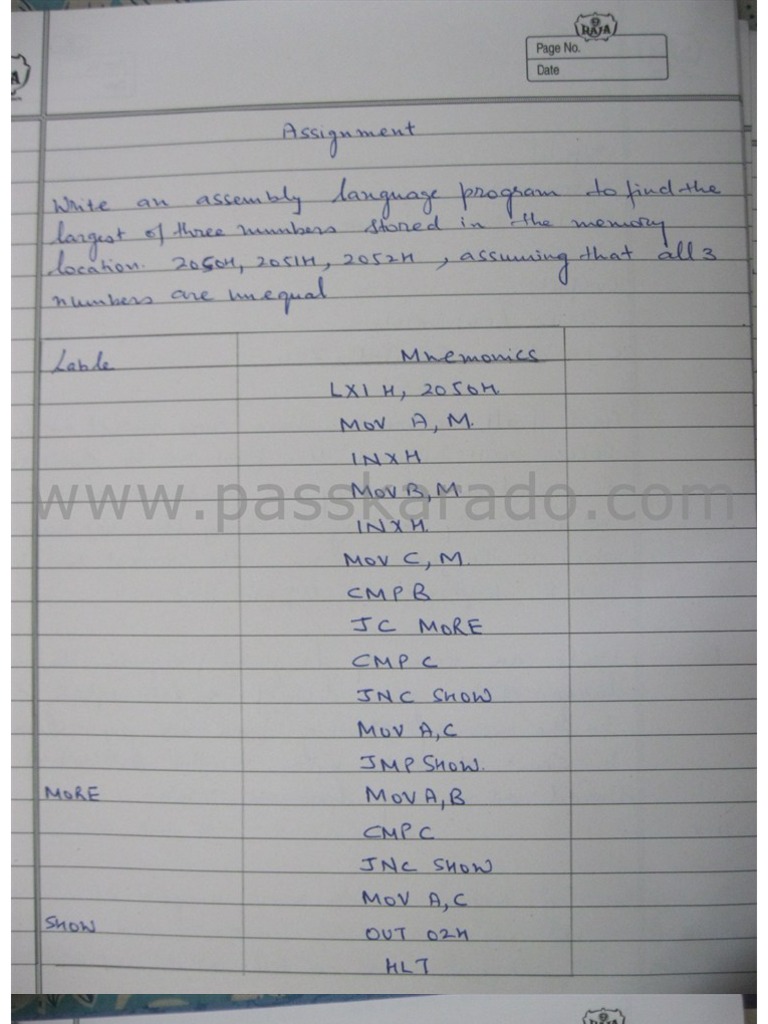 RAJA
Page No.
Date
Assignment
Write an assembly language program to find the
largest of three numbers stored in the memory
location. 2050H, 2051H, 2052H, assuming that all 3
numbers are unequal
Lable Mnemonics
LXI H, 2050H
MOV A, M.
INX H
MOV B, M
www.passkarado.com
INX H.
MOV C, M.
CMP B
JC MORE
CMP C
JNC SHOW
MOV A,C
JMP SHOW.
MORE MOV A,B
CMP C
JNC SHOW
MOV A,C
SHOW OUT 02H
HLT